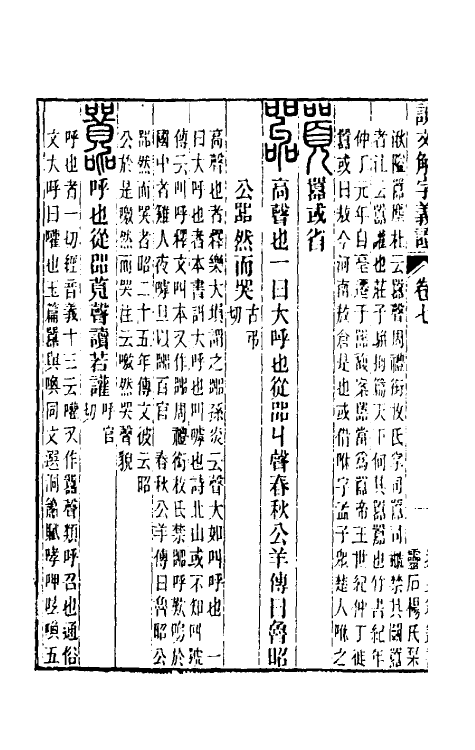 說文解字義證 卷七 靈石楊氏栞
湫隘囂塵杜云囂聲周禮銜枚氏掌司囂司虣禁其國囂
者注云囂讙也莊子駢拇篇天下何其囂囂也竹書紀年
仲丁元年自亳遷于囂敖案囂當為囂帝王世紀仲丁徙
囂或曰敖今河南敖倉是也或借咻字孟子衆楚人咻之
囂或省
高聲也一曰大呼也從㗊丩聲春秋公羊傳曰魯昭
公嘂然而哭 古弔切
高聲也者釋樂大塤謂之嘂孫炎云聲大如叫呼也 一
曰大呼也者本書訆大呼也叫嘑也詩北山或不知叫號
傳云叫呼釋文叫本又作嘂周禮銜枚氏禁嘂呼歎鳴於
國中者雞人夜嘑旦以嘂百官 春秋公羊傳曰魯昭公
嘂然而哭者昭二十五年傳文彼云昭
公於是噭然而哭注云噭然哭聲貌
呼也從㗊莧聲讀若讙 呼官切
呼也者一切經音義十三云嚾又作囂聲類呼召也通俗
文大呼曰嚾也玉篇囂與喚同文選洞簫賦哮呷㕧喚五